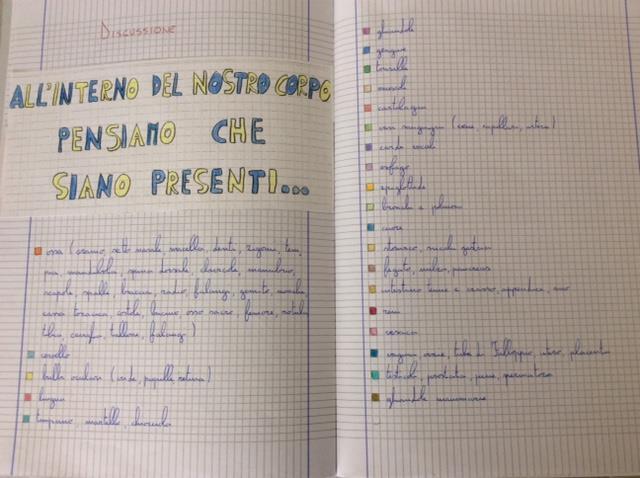 DISCUSSIONE
ALL'INTERNO DEL NOSTRO CORPO
PENSIAMO CHE
SIANO PRESENTI...
ossa ( cranio, setto nasale, mascella, denti, zigomi, tem
pia, mandibola, spina dorsale, clavicola, manubrio,
scapole, spalle, braccia, radio, falangi, gomito,
cassa toracica, costole, bacino, osso sacro, femore, rotula
tibia, caviglia, tallone, falangi )
cervello
bulbo oculare ( iride, pupilla, retina )
lingua
timpano, martello, chiocciola
ghiandole
gengive
tonsille
muscoli
cartilagine
vasi sanguigni ( vene, capillari, arterie )
corde vocali
esofago
epiglottide
bronchi e polmoni
cuore
stomaco, succhi gastrici
fegato, milza, pancreas
intestino tenue e crasso, appendice, ano
reni
vescica
vagina, ovaie, tube di Falloppio, utero, placenta
testicoli, prostata, pene, spermatozoi
ghiandole mammarie